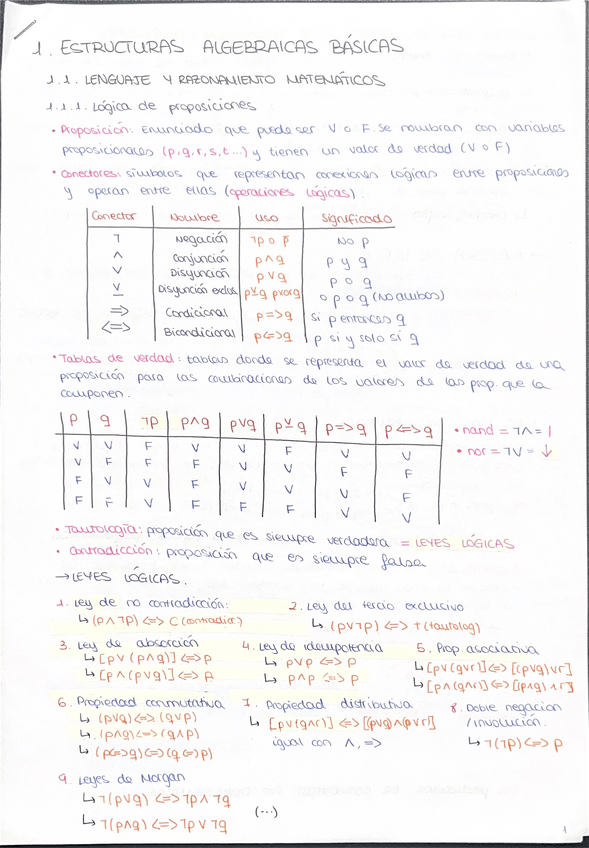 1. ESTRUCTURAS ALGEBRAICAS BÁSICAS
1.1. LENGUAJE Y RAZONAMIENTO MATEMÁTICOS
1.1.1. Lógica de proposiciones
• Proposición: Enunciado que puede ser V o F. Se nombran con variables
proposicionales (p,q,r,s,t...) y tienen un valor de verdad (V o F)
• Conectores: símbolos que representan conexiones lógicas entre proposiciones
y operan entre ellas (operaciones lógicas).
Conector Nombre uso Significado
¬ Negación ¬p o p̄ No p
∧ Conjunción p∧q p y q
∨ Disyunción p∨q p o q
⊻ Disyunción exclus p⊻q pxorq o p o q (no ambos)
=> Condicional p=>q si p entonces q
<=> Bicondicional p<=>q p si y solo si q
• Tablas de verdad: tablas donde se representa el valor de verdad de una
proposición para las combinaciones de los valores de las prop. que la
componen.
p q ¬p p∧q p∨q p⊻q p=>q p<=>q
V V F V V F V V
V F F F V V F F
F V V F V V V F
F F V F F F V V
• nand = ¬∧ = |
• nor = ¬∨ = ↓
• Tautología: proposición que es siempre verdadera = LEYES LÓGICAS
• Contradicción: proposición que es siempre falsa
→ LEYES LÓGICAS.
1. Ley de no contradicción:
↳ (p∧¬p) <=> C (contradicc)
2. Ley del tercio exclusivo
↳ (p∨¬p) <=> t (tautolog)
3. Ley de absorción
↳ [p∨(p∧q)] <=> p
↳ [p∧(p∨q)] <=> p
4. Ley de idempotencia
↳ p∨p <=> p
↳ p∧p <=> p
5. Prop. asociativa
↳ [p∨(q∨r)] <=> [(p∨q)∨r]
↳ [p∧(q∧r)] <=> [(p∧q)∧r]
6. Propiedad conmutativa
↳ (p∨q) <=> (q∨p)
↳ (p∧q) <=> (q∧p)
↳ (p<=>q) <=> (q<=>p)
7. Propiedad distributiva
↳ [p∨(q∧r)] <=> [(p∨q)∧(p∨r)]
igual con ∧, =>
8. Doble negación
/involución.
↳ ¬(¬p) <=> p
9. Leyes de Morgan
↳ ¬(p∨q) <=> ¬p∧¬q
↳ ¬(p∧q) <=> ¬p∨¬q
(...)
1